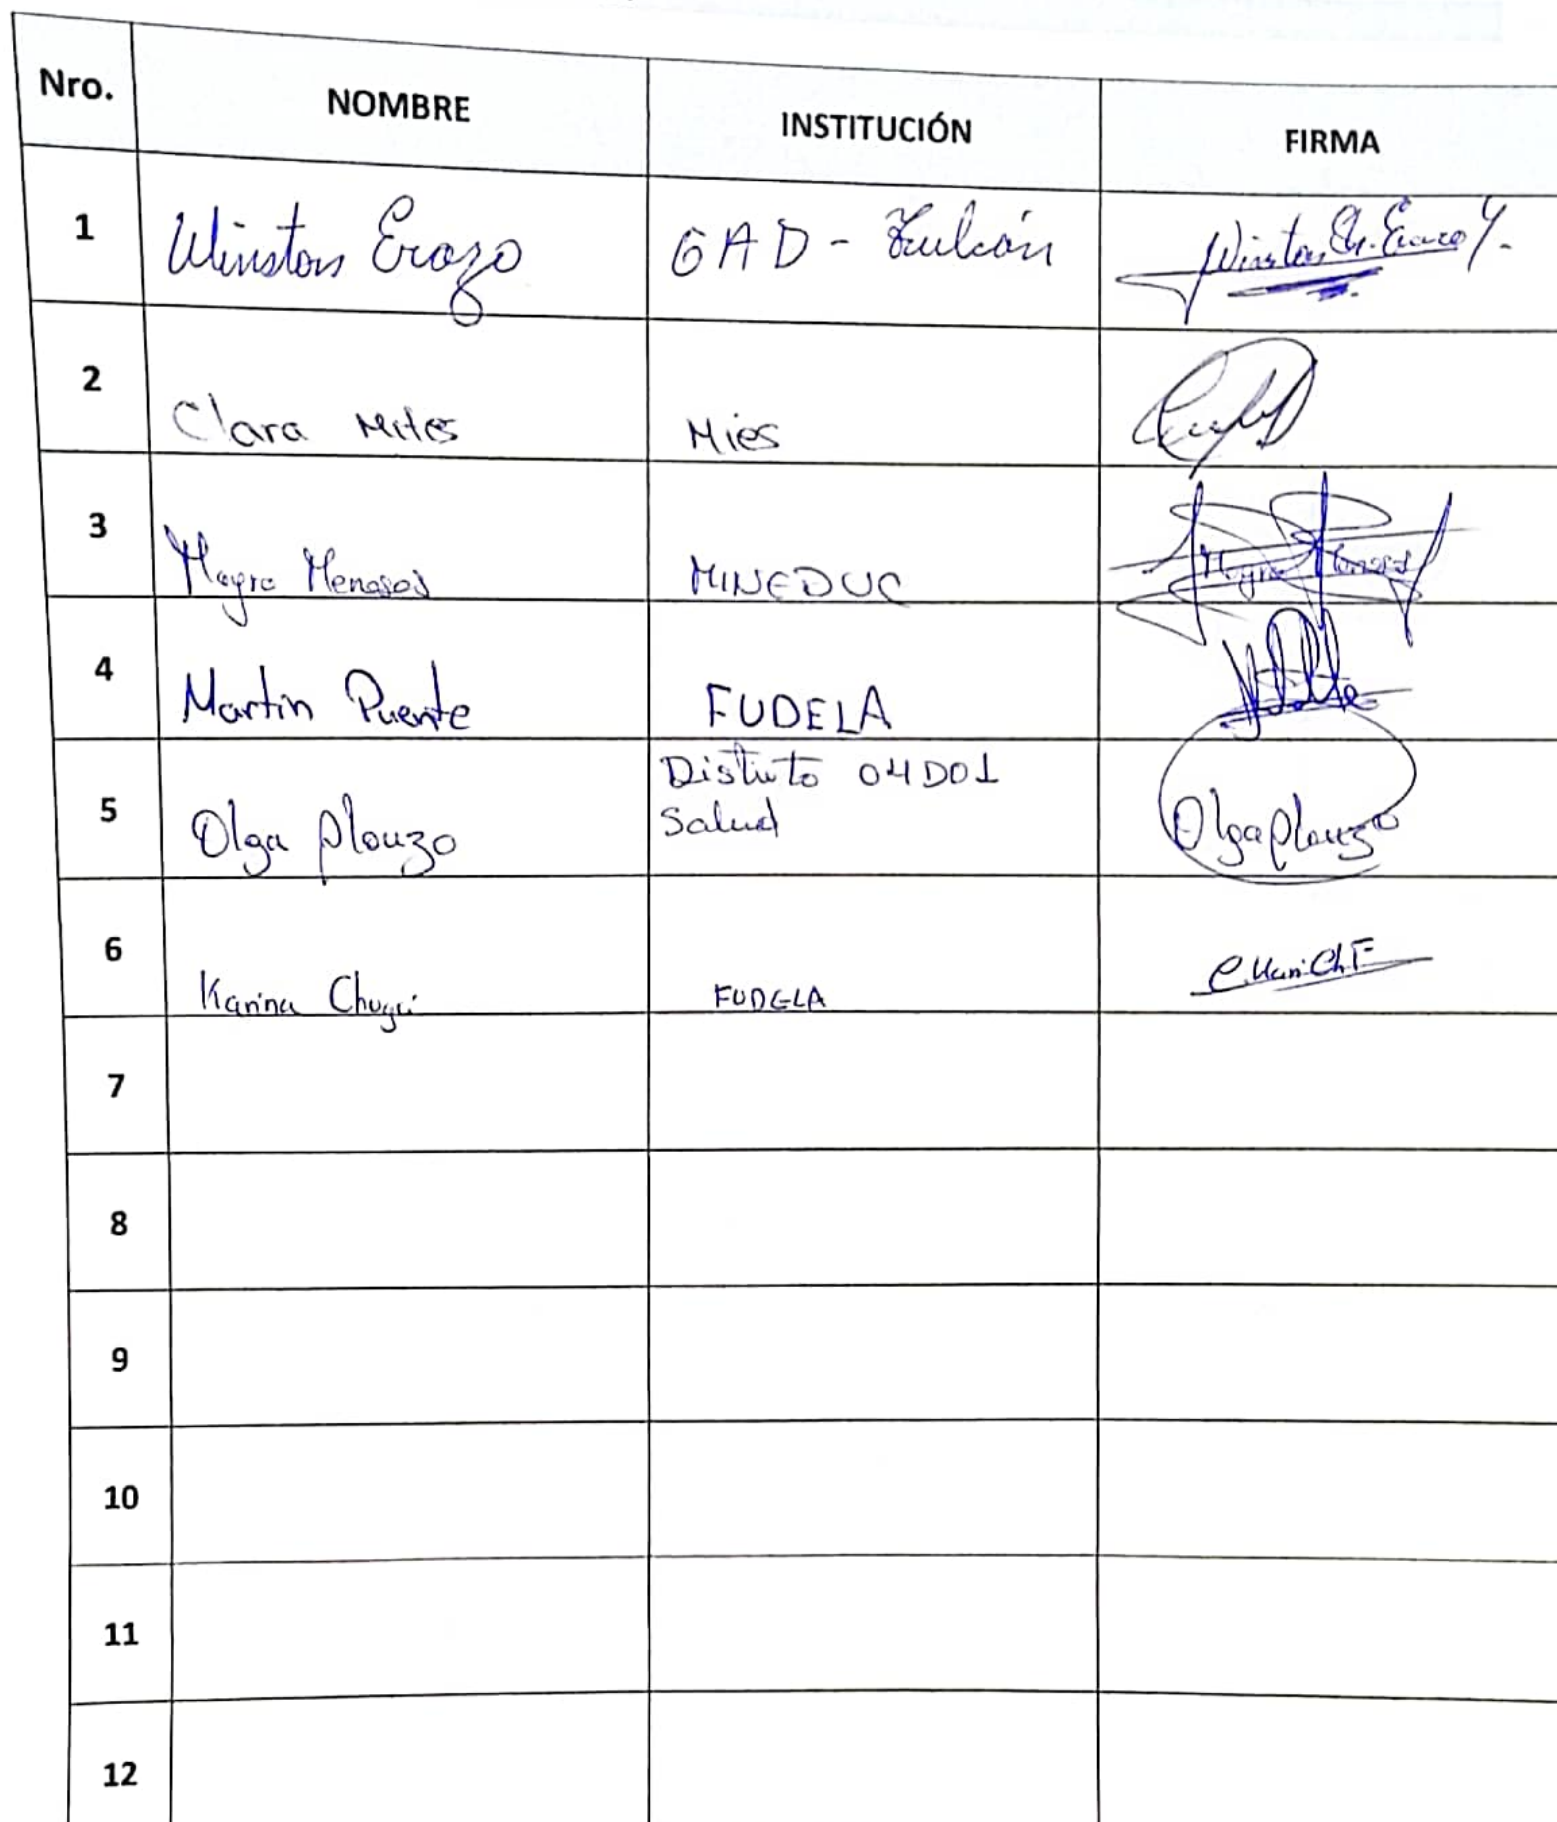 Nro. NOMBRE INSTITUCIÓN FIRMA
1 Winston Erazo GAD - Tulcán Winston Erazo Y.
2 Clara Mites Mies
3 Mayra MINEDUC Mayra
4 Martin Puente FUDELA
5 Olga Distrito 04D01
Salud Olga
6 Karina FUDELA
7
8
9
10
11
12